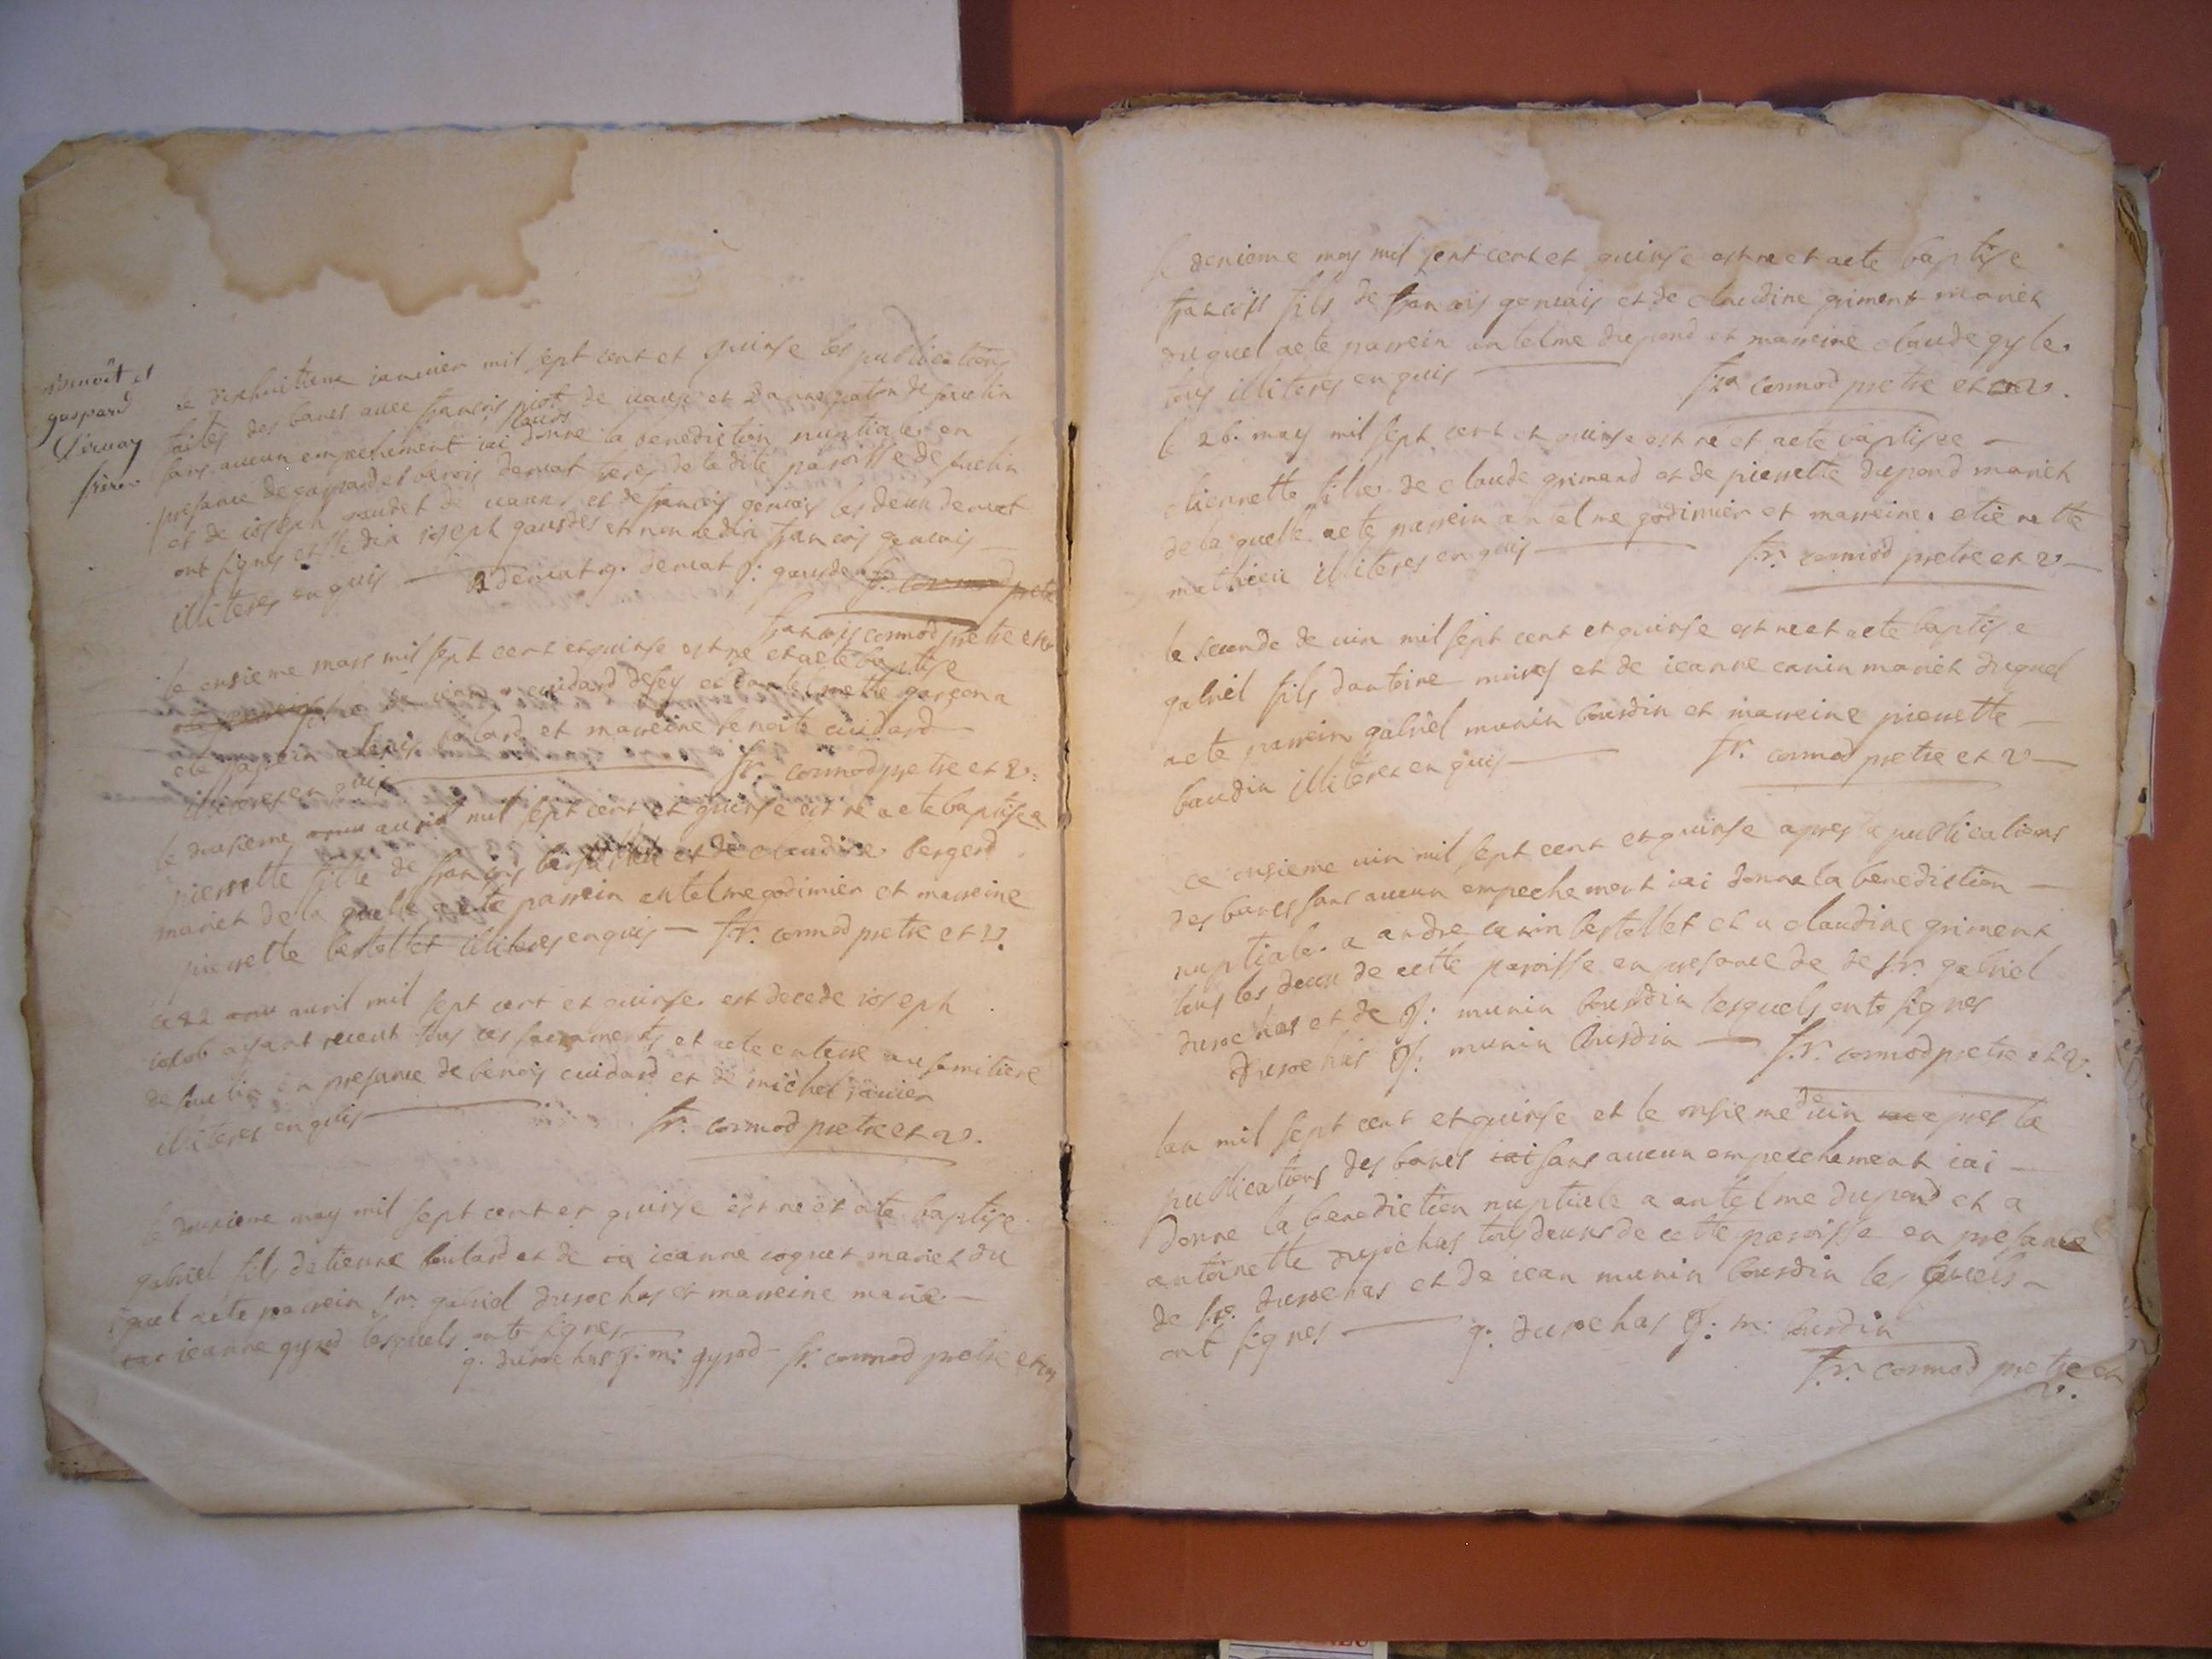 Benoît et
gaspard
Dervay
frères
le dixhuitieme ianuier mil sept cent et quinse les publications
faites des bancs auec francois de et
sans aucun empechement iai donne la benediction nuptiale en
presance de gaspard et benois deruat freres de la dite paroisse de
et de ioseph gaudet de et de francois geruais les deux deruat
ont signes et le dit ioseph gausdet et non le dit francois geruais
illiteres enquis — B deruat g. deruat J: gausdet fr. cormod pretre
francois cormod pretre et v
le onsieme mars mil sept cent et quinse est ne et aete baptise
fils de iean cuidard et dantelmette garçon a
ete parrein et marreine benoite cuidard
illiteres enquis — fr. cormod pretre et v.
le dousieme auril mil sept cent et quinse est ne aete baptisee
pierrette fille de francois bertellet et de claudine bergerd
mariet de la quelle aete parrein antelme godimier et marreine
pierrette bertellet illiteres enquis — fr. cormod pretre et v.
ce 22 auril mil sept cent et quinse est decede ioseph
iacob aiant receut tous ces sacrements et aete enterre au semitiere
de en presance de benois cuidard et de michel ianier
illiteres enquis —
fr. cormod pretre et v.
le dousieme may mil sept cent et quinse est ne et aete baptise
gabriel fils detienne boulard et de ia ieanne coquet mariet du
quel aete parrein sr. gabriel durochas et marreine marie —
ieanne gyrod lesquels ont signes
g. durochas J. m: gyrod — fr. cormod pretre et v
le denieme may mil sept cent et quinse est ne et aete baptise
francois fils de francois geruais et de claudine griment mariet
duquel aete parrein antelme dupond et marreine claude gyle.
tous illiteres enquis — fr. cormod pretre et v.
le 26. may mil sept cent et quinse est né et aete baptisee —
etiennette fille de claude grimend et de pierrette dupond mariet
de la quelle aete parrein antelme godimier et marreine etienette
mathieu illiteres enquis — fr. cormod pretre et v —
le seconde de iuin mil sept cent et quinse est ne et aete baptise
gabriel fils dantoine et de ieanne canin mariet duquel
aete parrein gabriel munin bourdin et marreine pierrette —
baudin illiteres enquis — fr. cormod pretre et v —
ce onsieme iuin mil sept cent et quinse apres la publications
des bancs sans aucun empechement iai donne la benediction —
nuptiale a andre canin bertellet et a claudine griment
tous les deux de cette paroisse en presance de de sr. gabriel
durochas et de J: munin bourdin lesquels ont signes
durochas J: munin bourdin — fr. cormod pretre et v.
lan mil sept cent et quinse et le onsieme de iuin apres la
publications des bancs iai sans aucun empeechement iai —
donne la benediction nuptiale a antelme dupond et a
antoinette durochas tous deux de cette paroisse en presance
de sr. durochas et de iean munin bourdin les quels —
ont signes — g. durochas J: m: bourdin
fr. cormod pretre et
v.